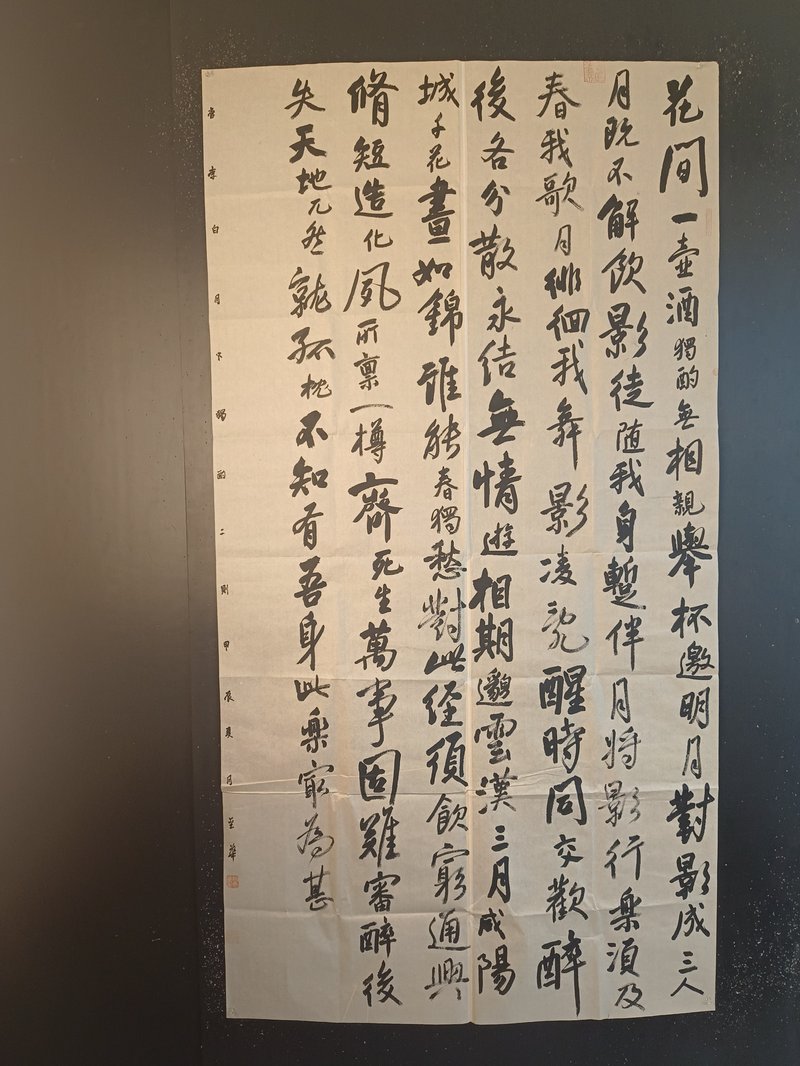 花間一壺酒獨酌無相親舉杯邀明月對影成三人
月既不解飲影徒随我身暫伴月將影行樂須及
春我歌月徘徊我舞影凌亂醒時同交歡醉
後各分散永结無情遊相期邈雲漢三月咸陽
城千花晝如錦誰能春獨愁對此径須飲窮通與
脩短造化夙所稟一樽齊死生萬事固難審醉後
失天地兀然就孤枕不知有吾身此樂最為甚
唐李白月下獨酌二則甲辰夏月至華